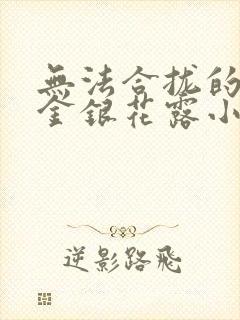 無法合拢的
金銀花露小
逆影路飛